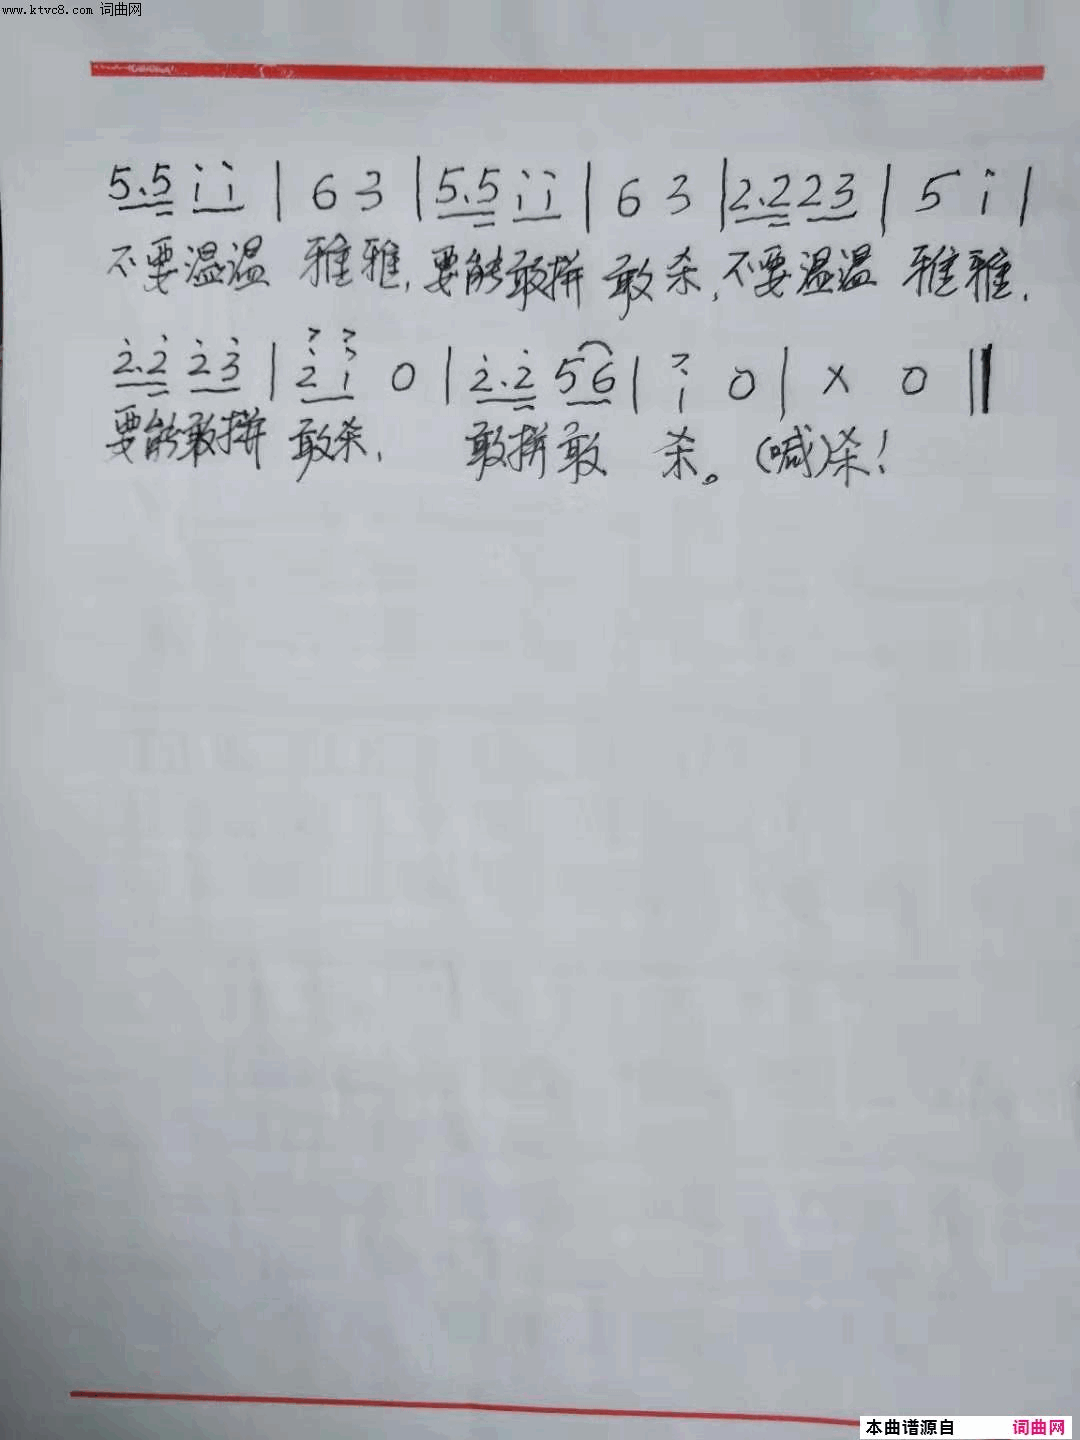 www.ktvc8.com 词曲网
5.5 i i | 6 3 | 5.5 i i | 6 3 | 2.2 2 3 | 5 i |
不要温温 雅雅,要能敢拼 敢杀,不要温温 雅雅.
2̇.2̇ 2̇ 3̇ | 2̇ i 0 | 2̇.2̇ 5 6 | i 0 | x 0 ‖
要能敢拼 敢杀, 敢拼敢 杀。(喊)杀!
本曲谱源自 词曲网